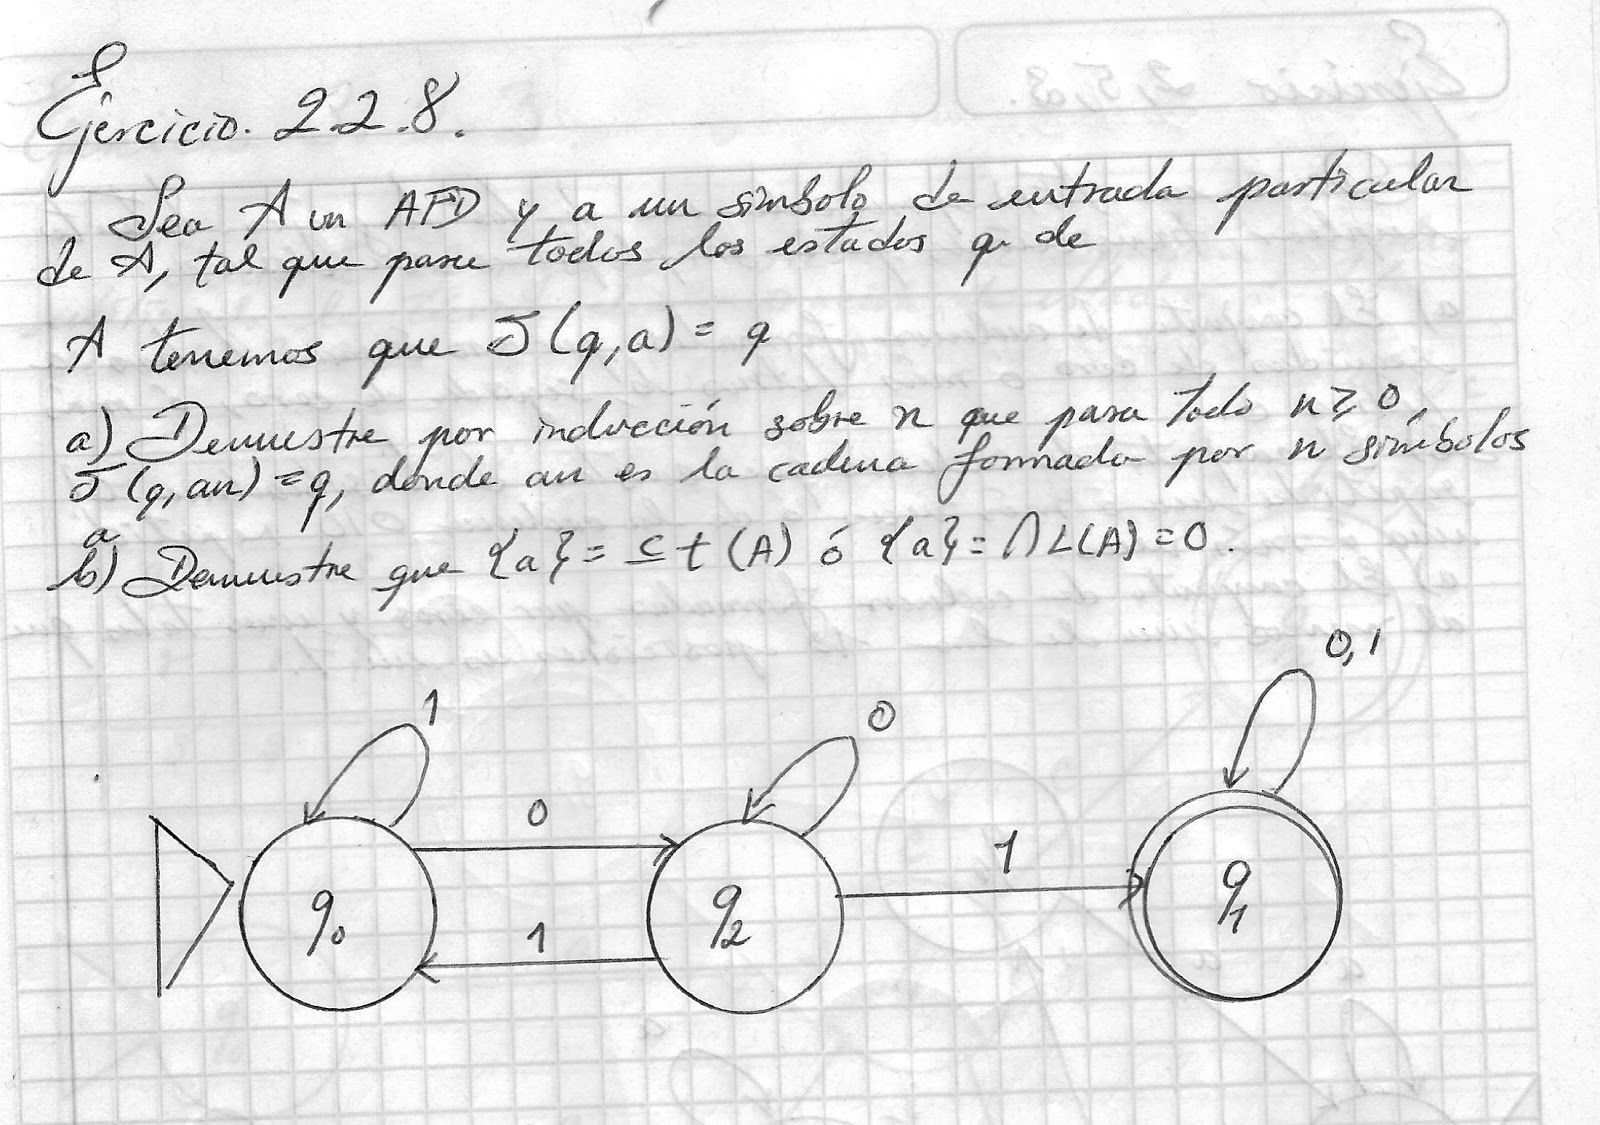 Ejercicio. 2.2.8.
Sea A un AFD y a un símbolo de entrada particular
de A, tal que para todos los estados q de
A tenemos que δ(q,a) = q
a) Demuestre por inducción sobre n que para todo n ≥ 0,
δ(q,an) = q, donde an es la cadena formada por n símbolos
a
b) Demuestre que {a} = ⊆ t(A) ó {a} = ∩ L(A) = 0.
0,1
1
0
0
1
1
q0
q2
q1